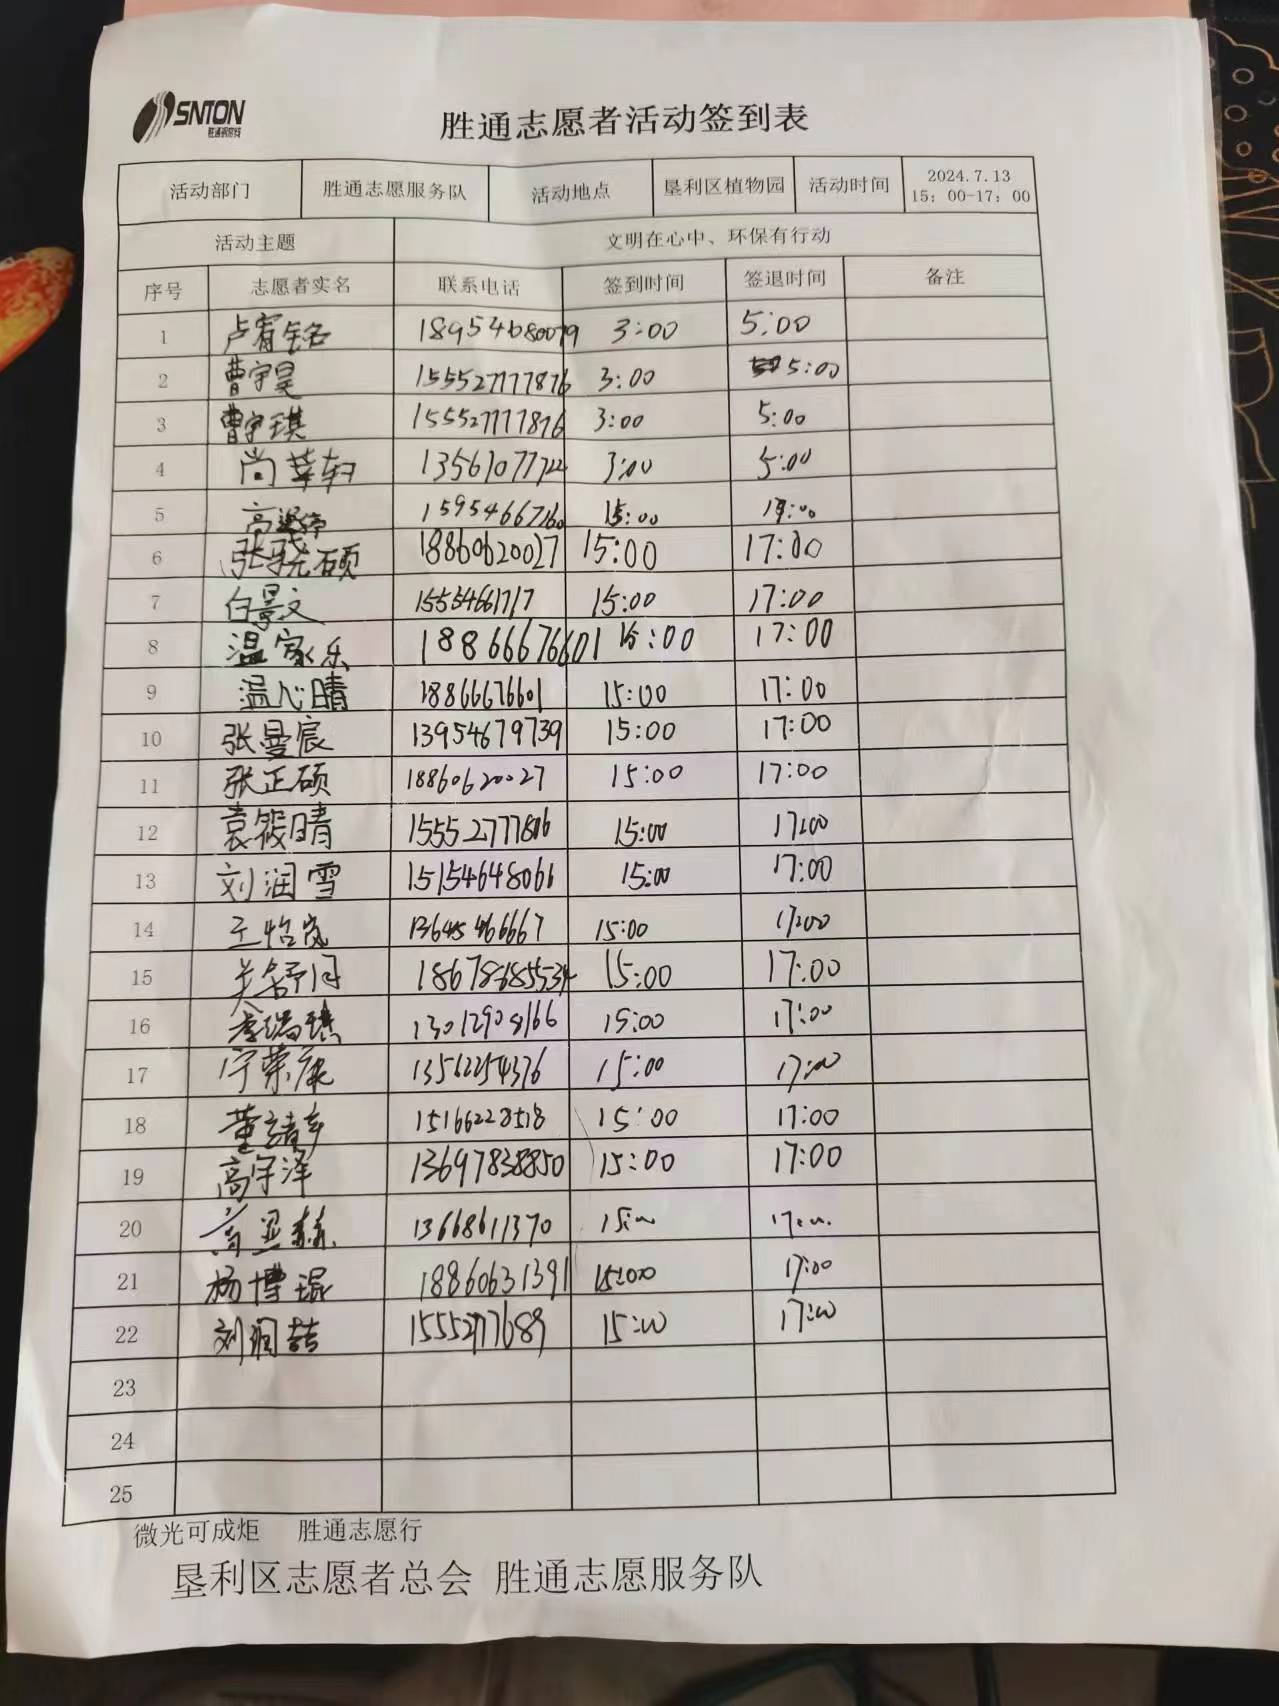 SNTON
胜通钢帘线
胜通志愿者活动签到表
活动部门 胜通志愿服务队 活动地点 垦利区植物园 活动时间 2024.7.13
15：00-17：00
活动主题 文明在心中、环保有行动
序号 志愿者实名 联系电话 签到时间 签退时间 备注
1 卢宥铭 18954680079 3:00 5:00
2 曹宇昊 155527777876 3:00 5:00
3 曹宇琪 15552777876 3:00 5:00
4 尚莘轩 3:00 5:00
5 15954667760 15:00 17:00
6 张骁硕 18860620027 15:00 17:00
7 白景文 15:00 17:00
8 温家乐 18866676601 15:00 17:00
9 温心晴 18866676601 15:00 17:00
10 张曼宸 13954679739 15:00 17:00
11 张正硕 18860620027 15:00 17:00
12 袁筱晴 15:00 17:00
13 刘润雪 15154648066 15:00 17:00
14 王怡岚 13645466667 15:00 17:00
15 关舒月 15:00 17:00
16 李瑞琪 13012908166 15:00 17:00
17 宁荣康 13562254376 15:00 17:00
18 15166228518 15:00 17:00
19 高宇泽 13697838850 15:00 17:00
20 13668611370 15:00 17:00
21 杨博琨 18860631391 15:00 17:00
22 刘润喆 15552777689 15:00 17:00
23
24
25
微光可成炬 胜通志愿行
垦利区志愿者总会 胜通志愿服务队